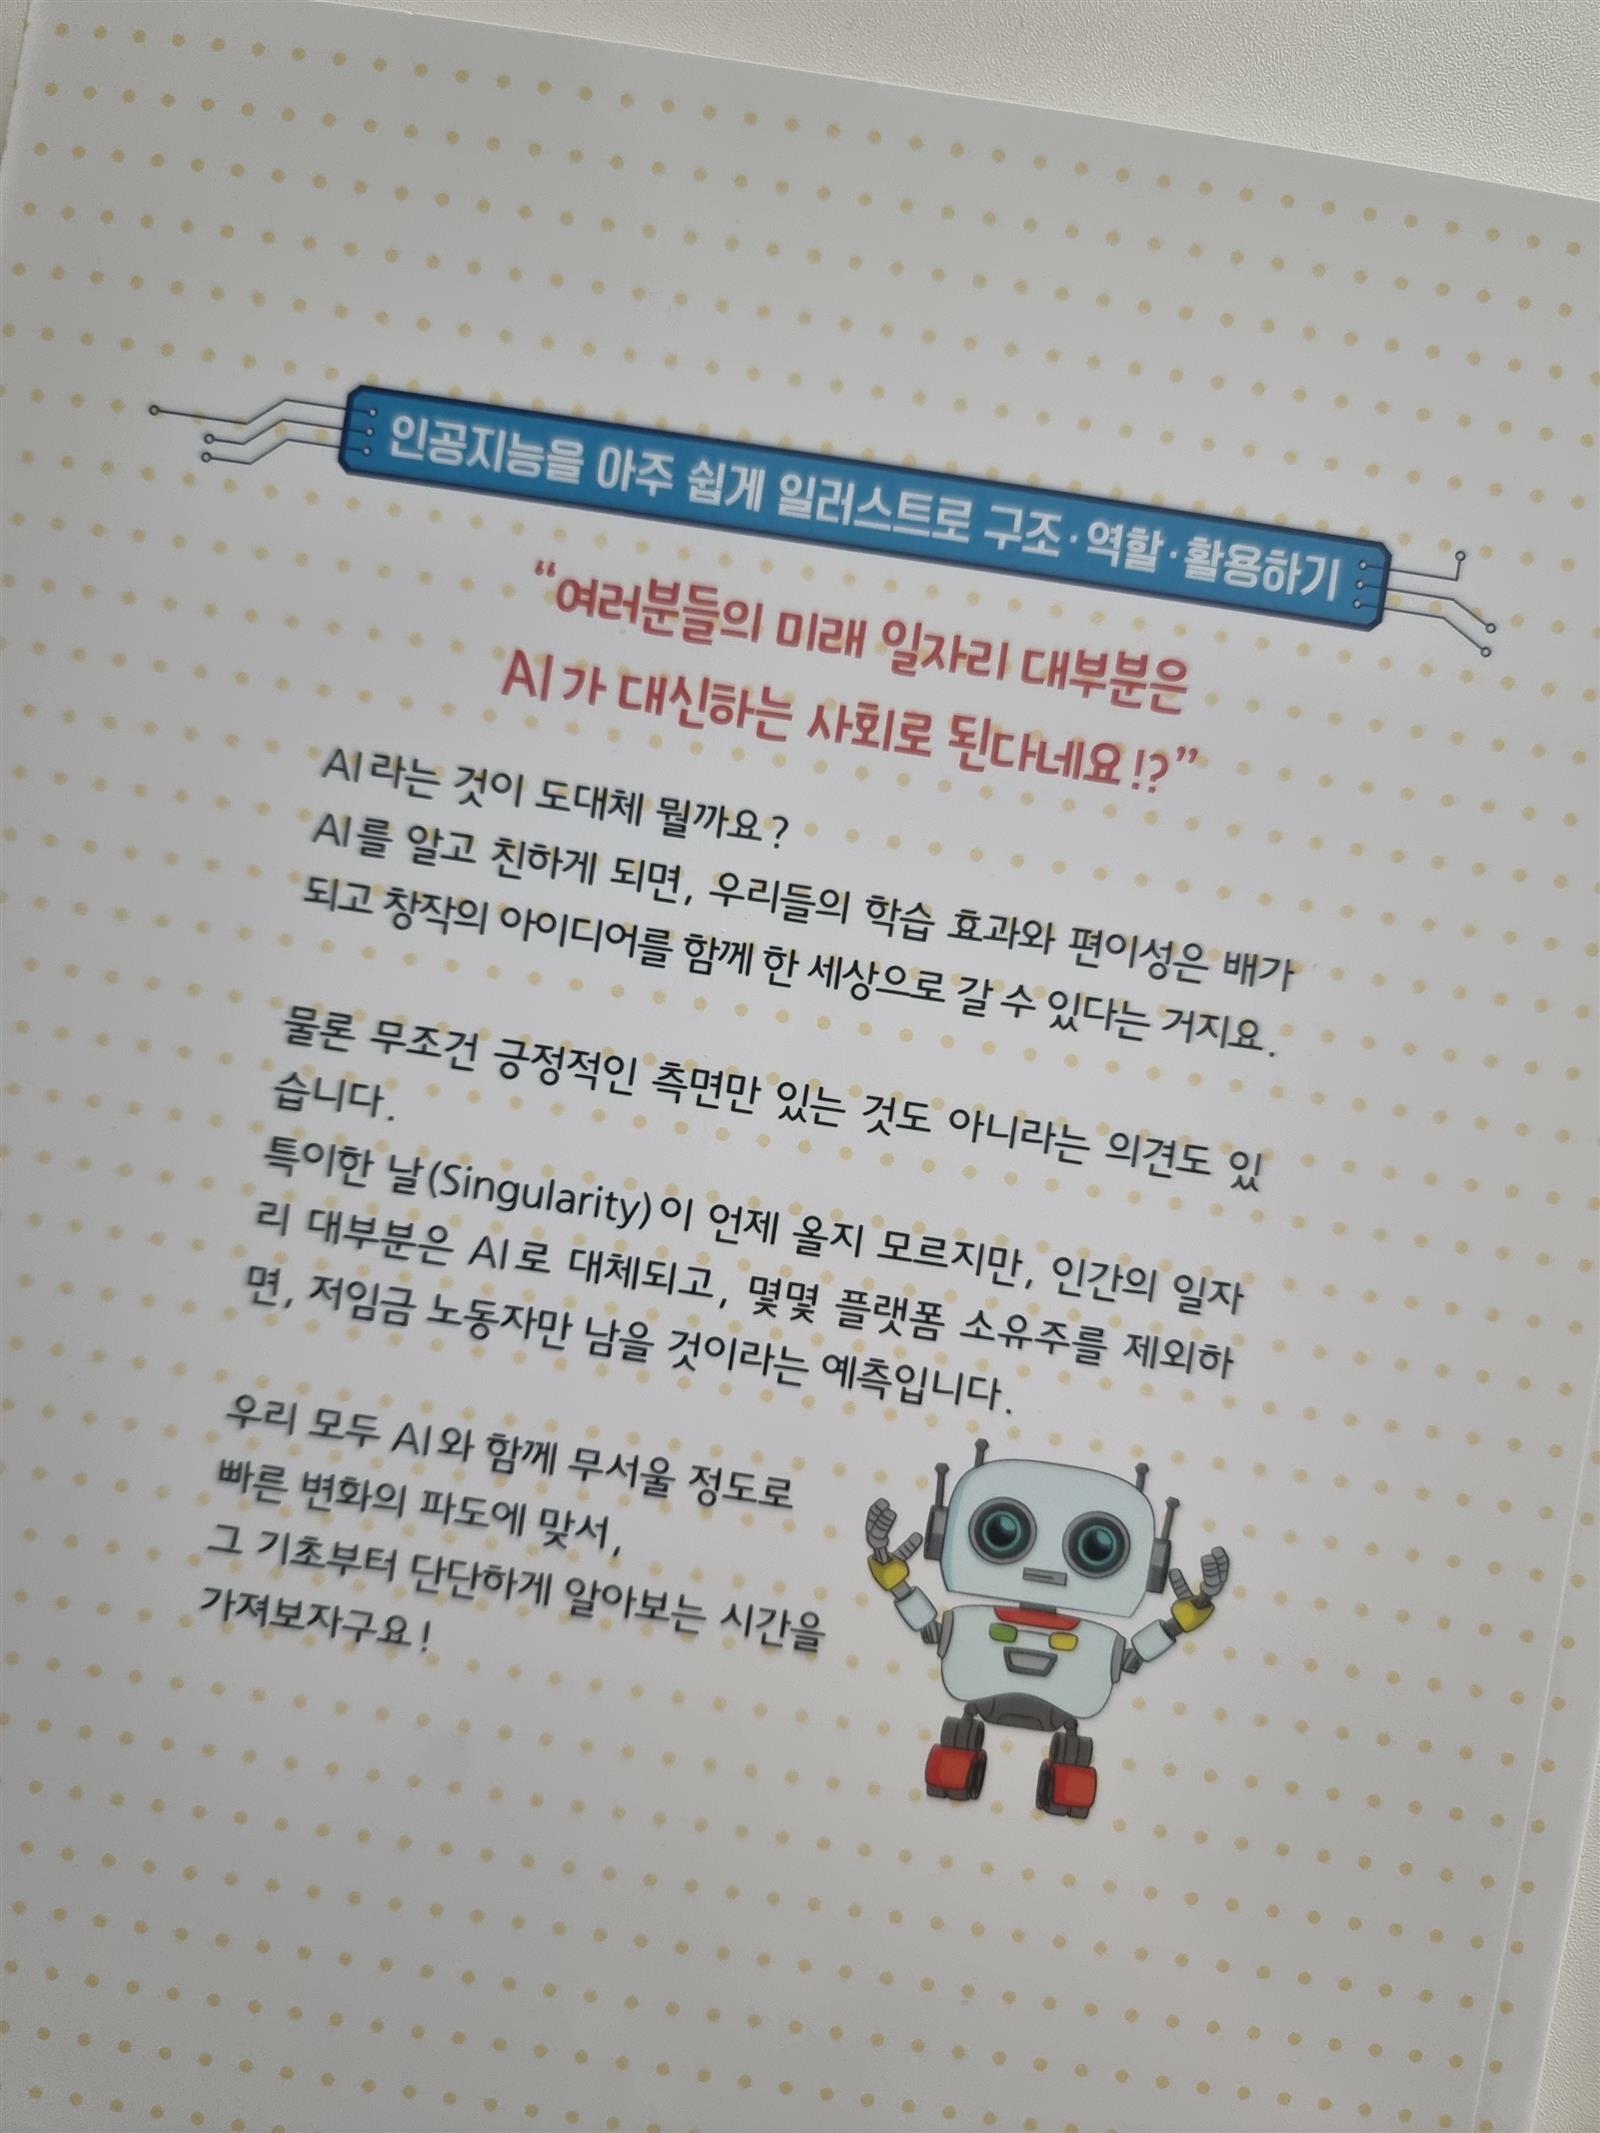 인공지능을 아주 쉽게 일러스트로 구조·역할·활용하기
“여러분들의 미래 일자리 대부분은
AI가 대신하는 사회로 된다네요!?”
AI라는 것이 도대체 뭘까요?
AI를 알고 친하게 되면, 우리들의 학습 효과와 편이성은 배가
되고 창작의 아이디어를 함께 한 세상으로 갈 수 있다는 거지요.
물론 무조건 긍정적인 측면만 있는 것도 아니라는 의견도 있
습니다.
특이한 날(Singularity)이 언제 올지 모르지만, 인간의 일자
리 대부분은 AI로 대체되고, 몇몇 플랫폼 소유주를 제외하
면, 저임금 노동자만 남을 것이라는 예측입니다.
우리 모두 AI와 함께 무서울 정도로
빠른 변화의 파도에 맞서,
그 기초부터 단단하게 알아보는 시간을
가져보자구요!